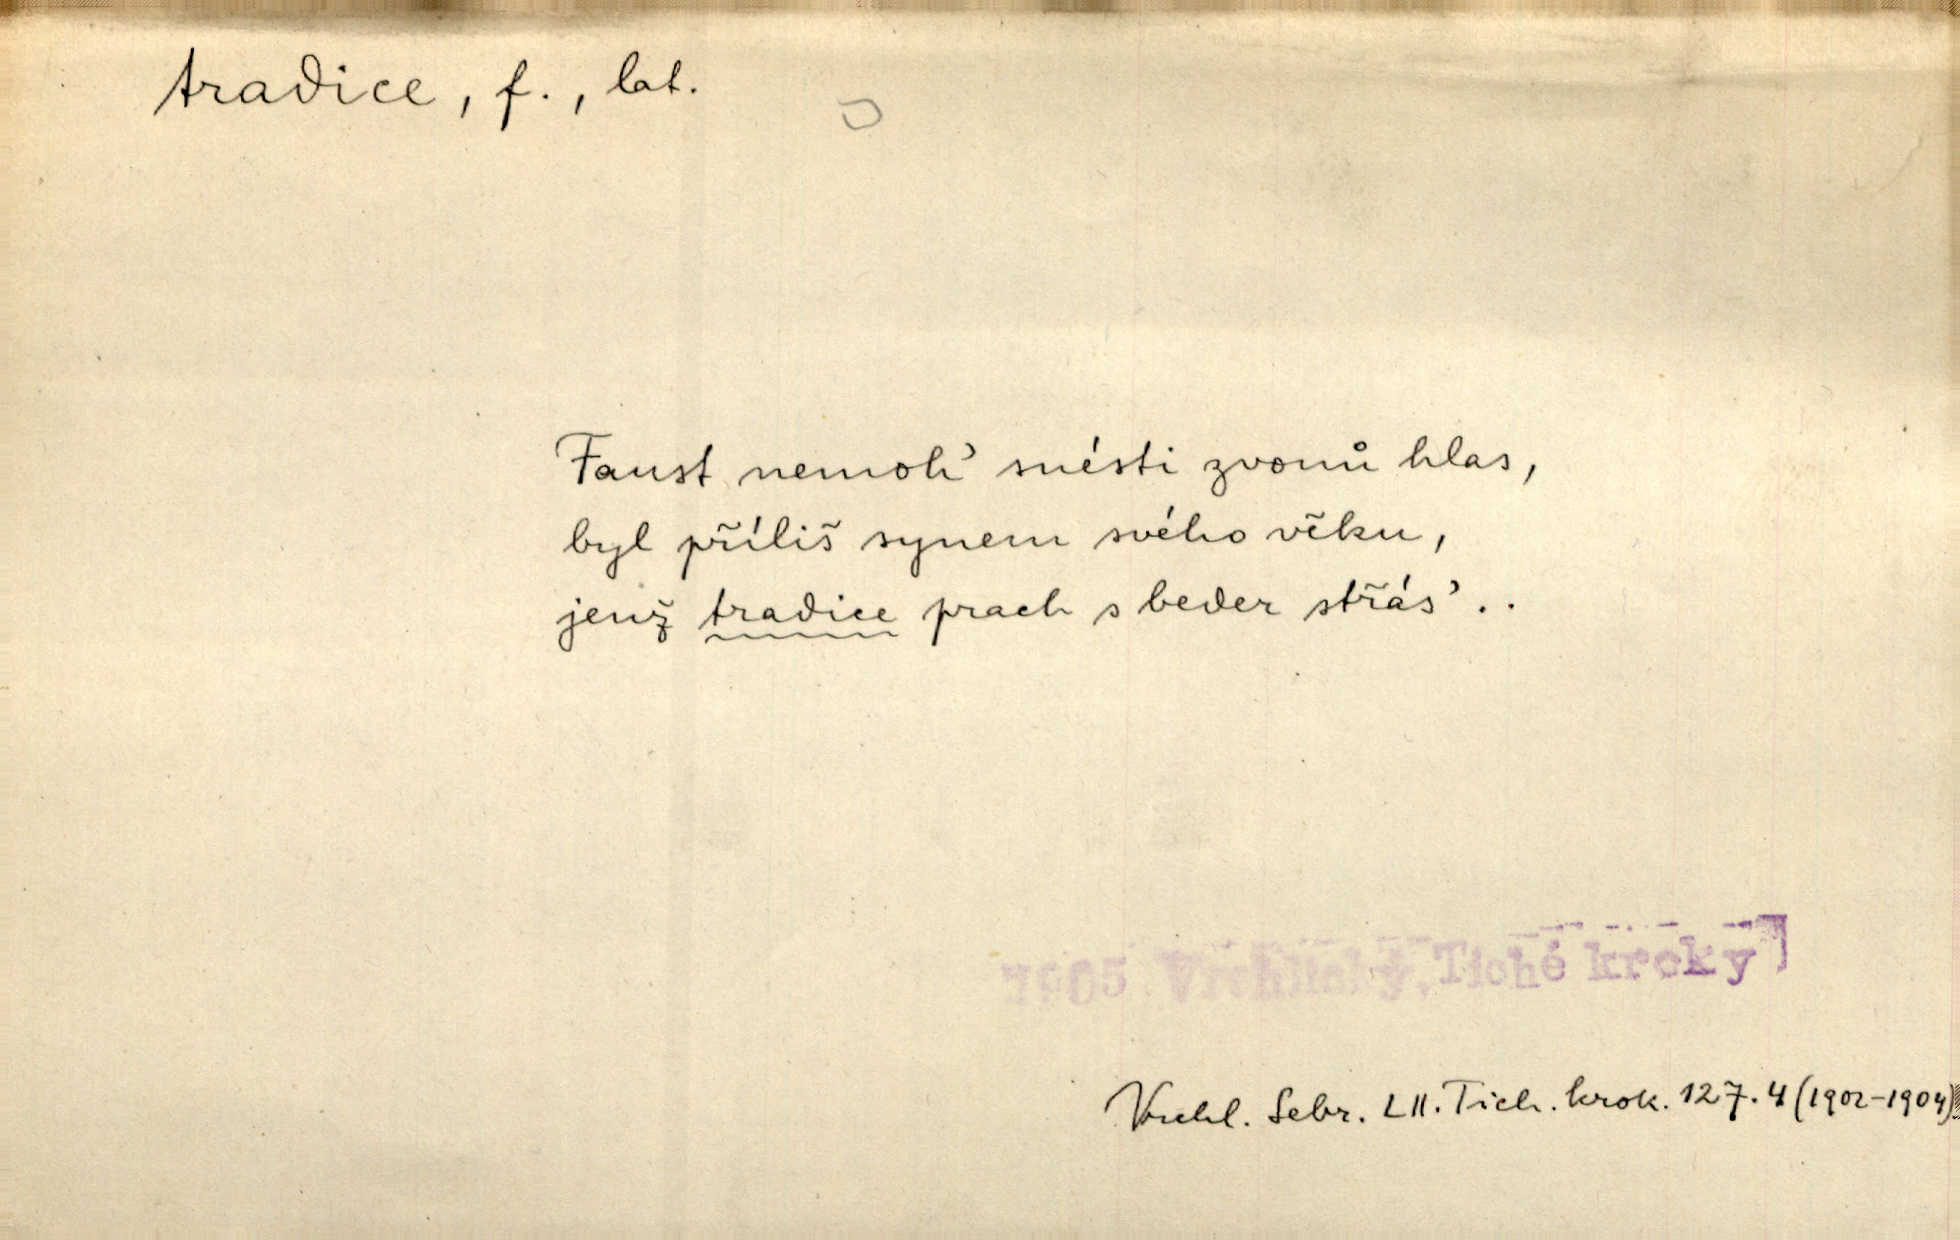 tradice, f., lat.
Faust nemoh' snésti zvonů hlas,
byl příliš synem svého věku,
jenž tradice prach s beder střás' ..
1905 Vrchlický, Tiché kroky
Vrchl. Sebr. LII. Tich. krok. 127. 4 (1902-1904)